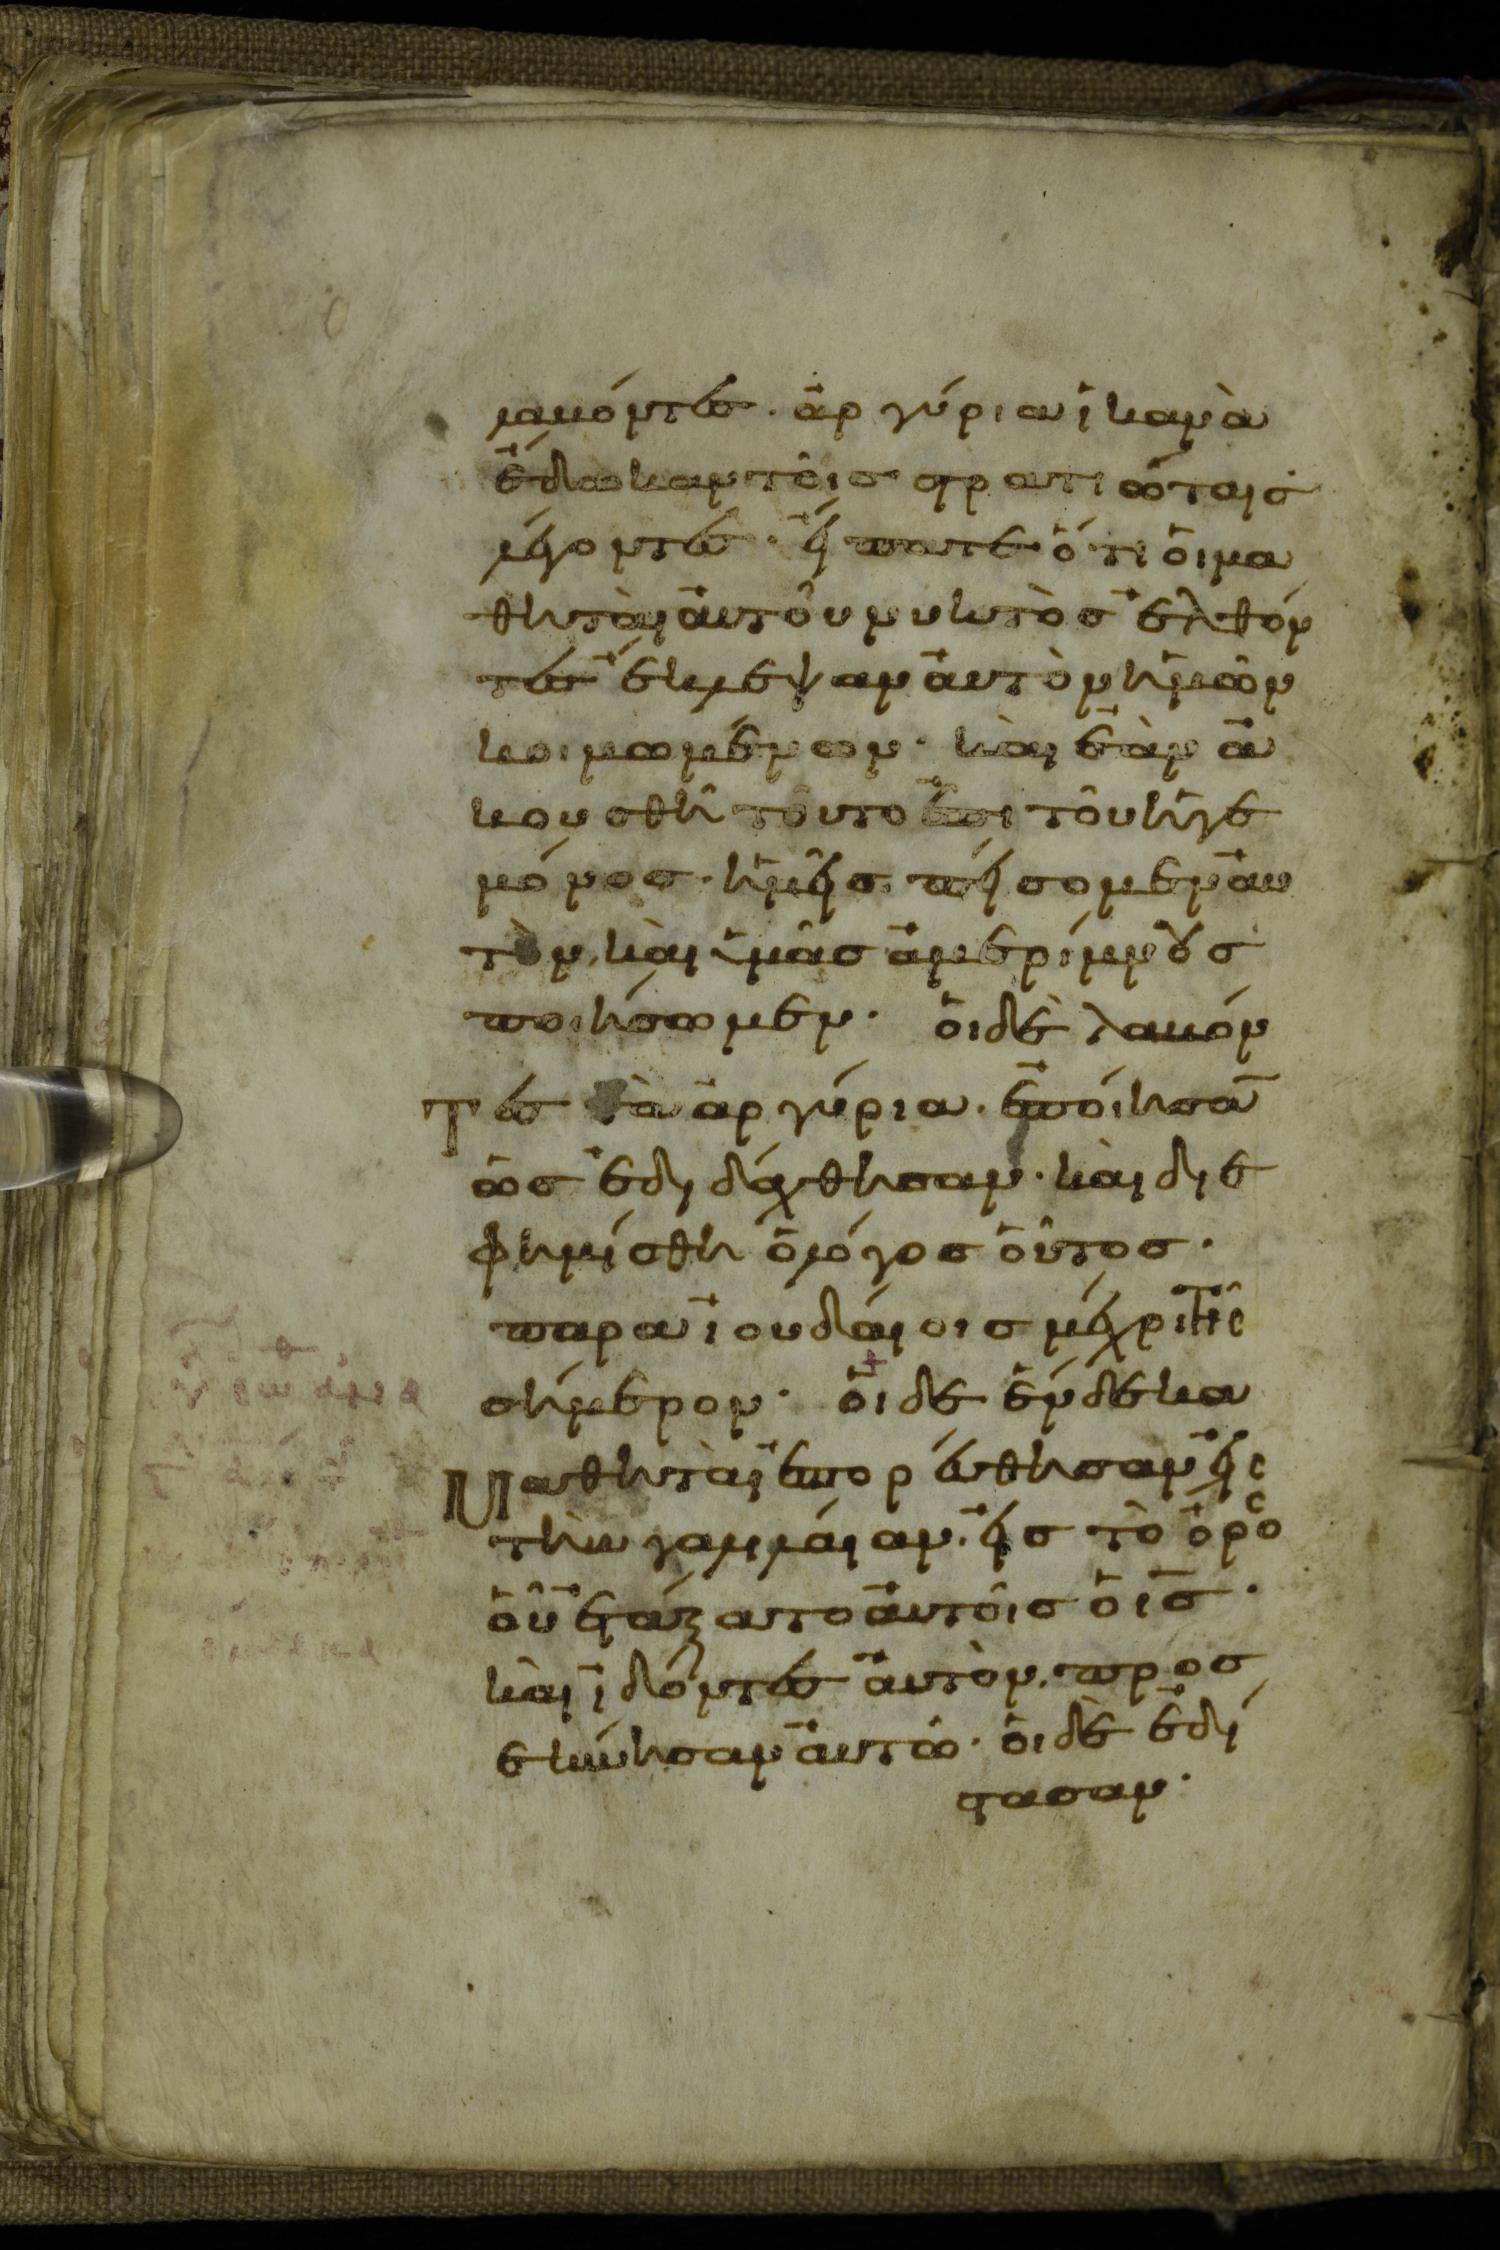 λαβόντες. ἀργύρια ἱκανὰ
ἔδωκαν τοῖς στρατιώταις
λέγοντες. εἴπατε ὅτι ὁι μα
θηταὶ ἀυτοῦ νυκτὸς ἐλθόν
τες ἔκλεψαν ἀυτὸν ἡμῶν
κοιμωμένων. καὶ ἐὰν ἀ
κουσθῆ τοῦτο ἐπὶ τοῦ ἡγε
μόνος. ἡμεῖς πείσομεν ἀυ
τὸν, καὶ ὑμᾶς ἀμερίμνους
ποιήσωμεν. ὁι δὲ λαβόν
τες τὰ ἀργύρια. ἐποίησα̅
ὡς ἐδιδάχθησαν. καὶ διε
φημίσθη ὁ λόγος οὗτος.
παρα ἰουδαίοις μέχρι τῆς
σήμερον. ὁι δε ἕνδεκα
μαθηταὶ ἐπορεύθησαν εἰς
τὴν γαλιλαίαν. εἰς τὸ ὄρος
οὗ ἐτάξατο ἀυτοῖς ὁ ι̅ς̅.
καὶ ἰδόντες ἀυτὸν, προσ
εκύνησαν ἀυτῶ. ὁι δὲ ἐδί
στασαν.